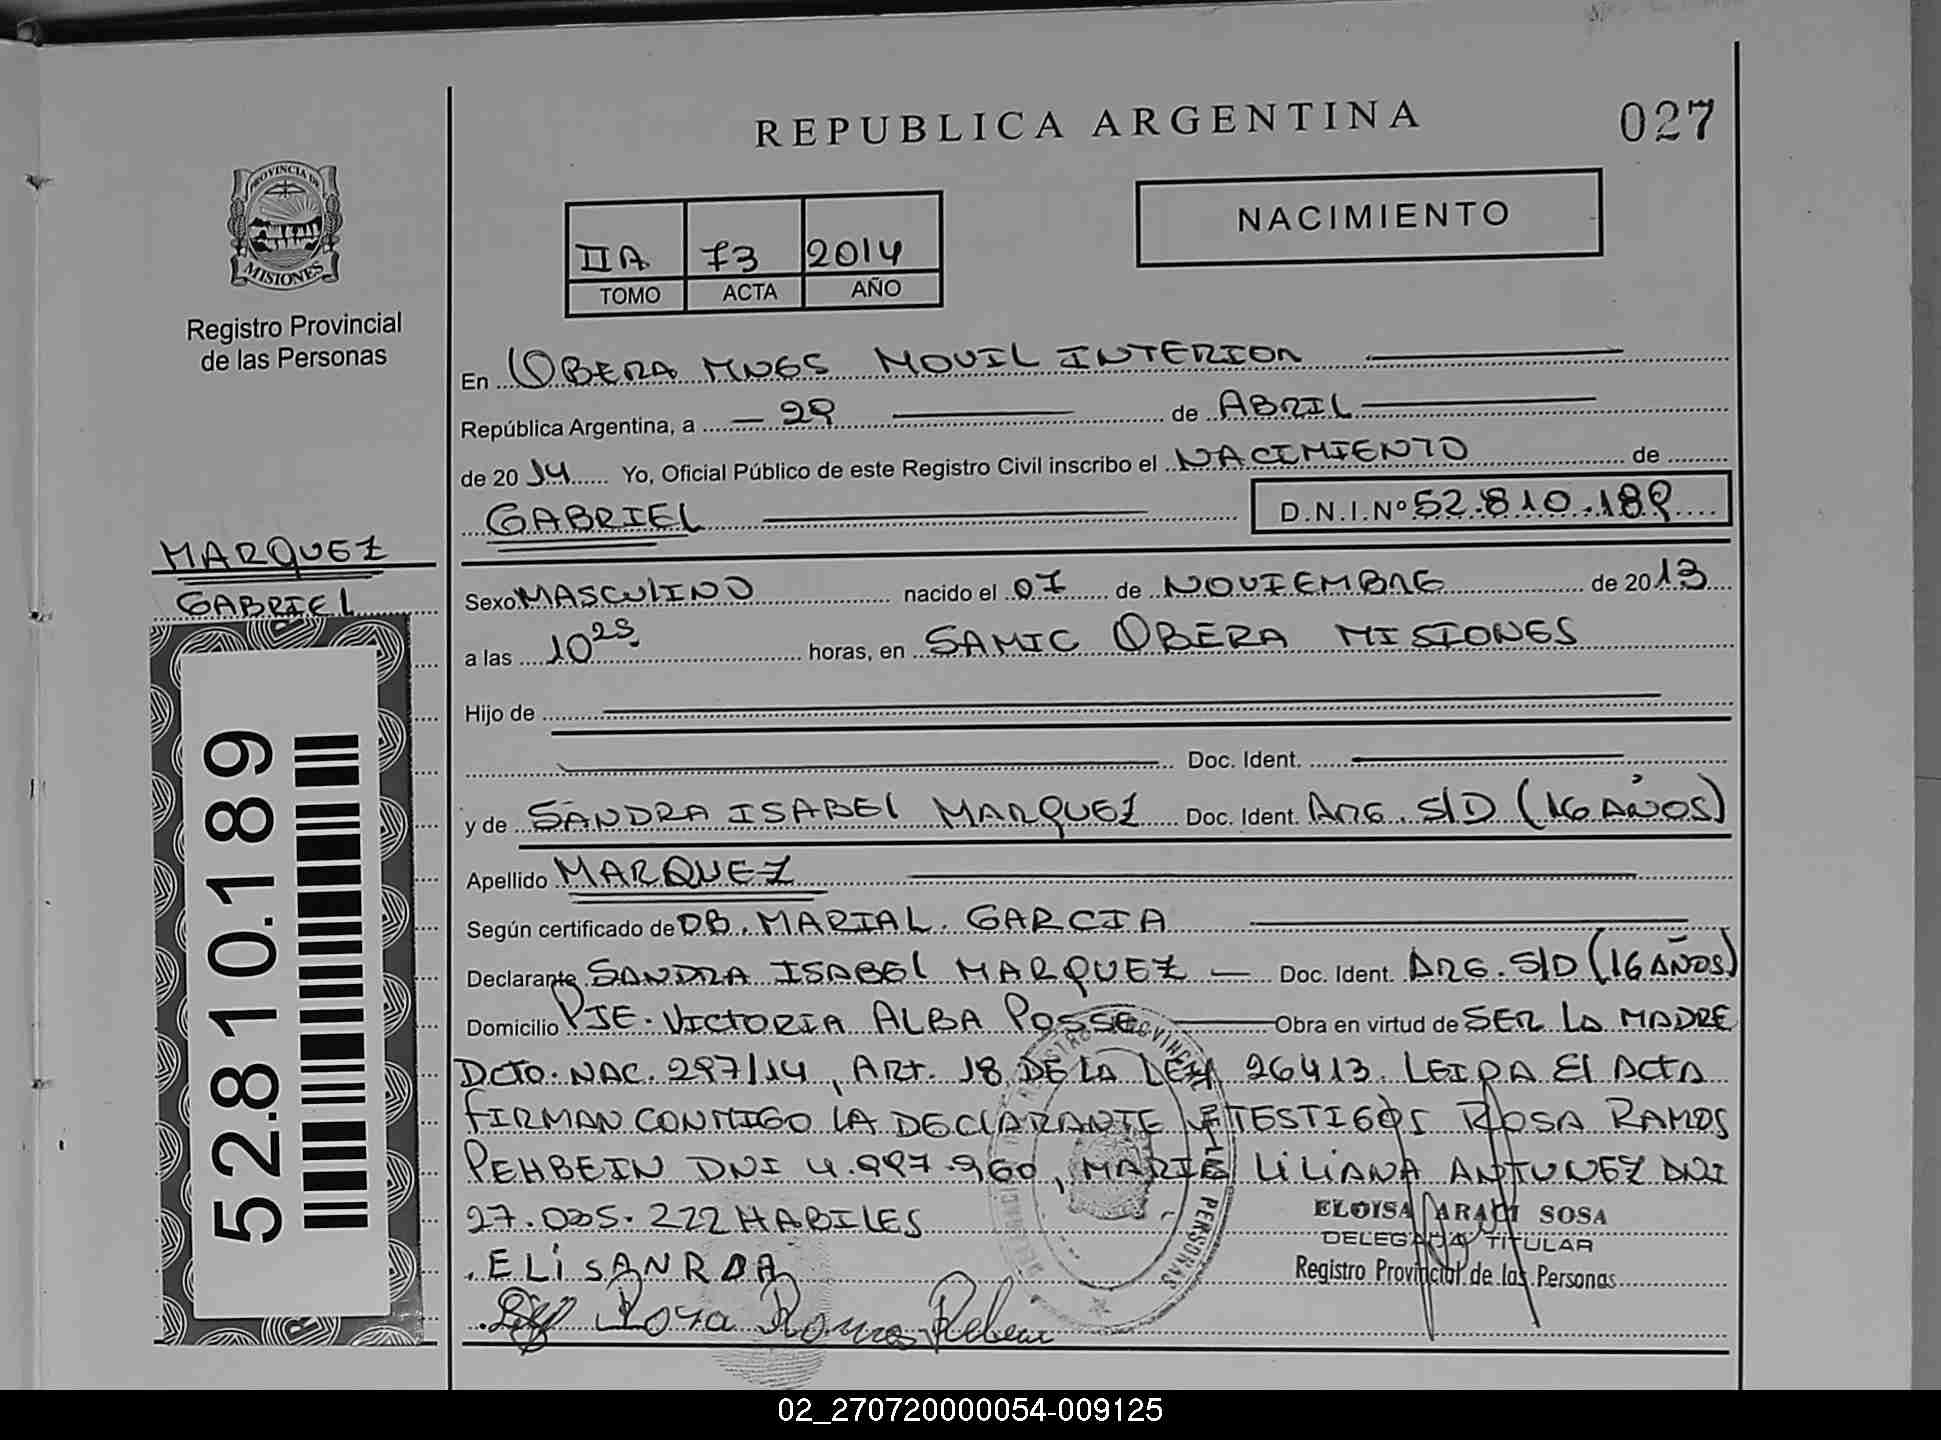 REPUBLICA ARGENTINA
027
PROVINCIA DE
MISIONES
Registro Provincial
de las Personas
NACIMIENTO
IIA 73 2014
TOMO ACTA AÑO
En OBERA MNES MOVIL INTERIOR
República Argentina, a 29 de ABRIL
de 2014 Yo, Oficial Público de este Registro Civil inscribo el NACIMIENTO de
GABRIEL D.N.I.Nº 52.810.189
MARQUEZ
GABRIEL
Sexo MASCULINO nacido el 07 de NOVIEMBRE de 2013
a las 10 25 horas, en SAMIC OBERA MISIONES
Hijo de
Doc. Ident.
y de SANDRA ISABEL MARQUEZ Doc. Ident. ARG. S/D (16 AÑOS)
Apellido MARQUEZ
Según certificado de DB. MARIAL. GARCIA
Declarante SANDRA ISABEL MARQUEZ Doc. Ident. ARG. S/D (16 AÑOS)
Domicilio PJE. VICTORIA ALBA POSSE Obra en virtud de SER LA MADRE
DCTO. NAC. 297/14, ART. 18 DE LA LEY 26413. LEIDA El ACTA
FIRMAN CONMIGO LA DECLARANTE Y TESTIGOS ROSA RAMOS
PEHBEIN DNI 4.997.960, MARIA LILIANA ANTUNEZ DNI
27.005.222 HABILES
ELISANRDA
Rosa Ramos
ELOISA ARACI SOSA
DELEGADA TITULAR
Registro Provincial de las Personas
52.810.189
02_270720000054-009125